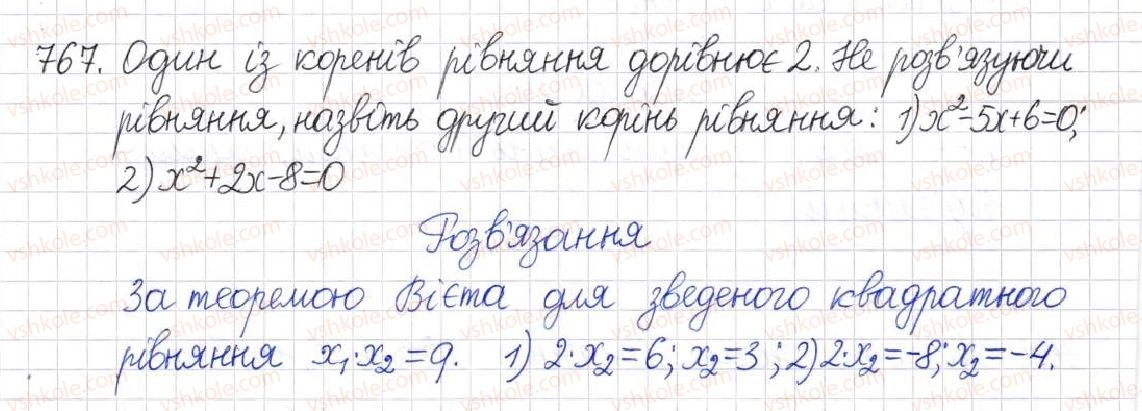 767. Один із коренів рівняння дорівнює 2. Не розв'язуючи
рівняння, назвіть другий корінь рівняння: 1) x²-5x+6=0;
2) x²+2x-8=0
Розв'язання
За теоремою Вієта для зведеного квадратного
рівняння x₁·x₂=q. 1) 2·x₂=6; x₂=3; 2) 2·x₂=-8; x₂=-4.